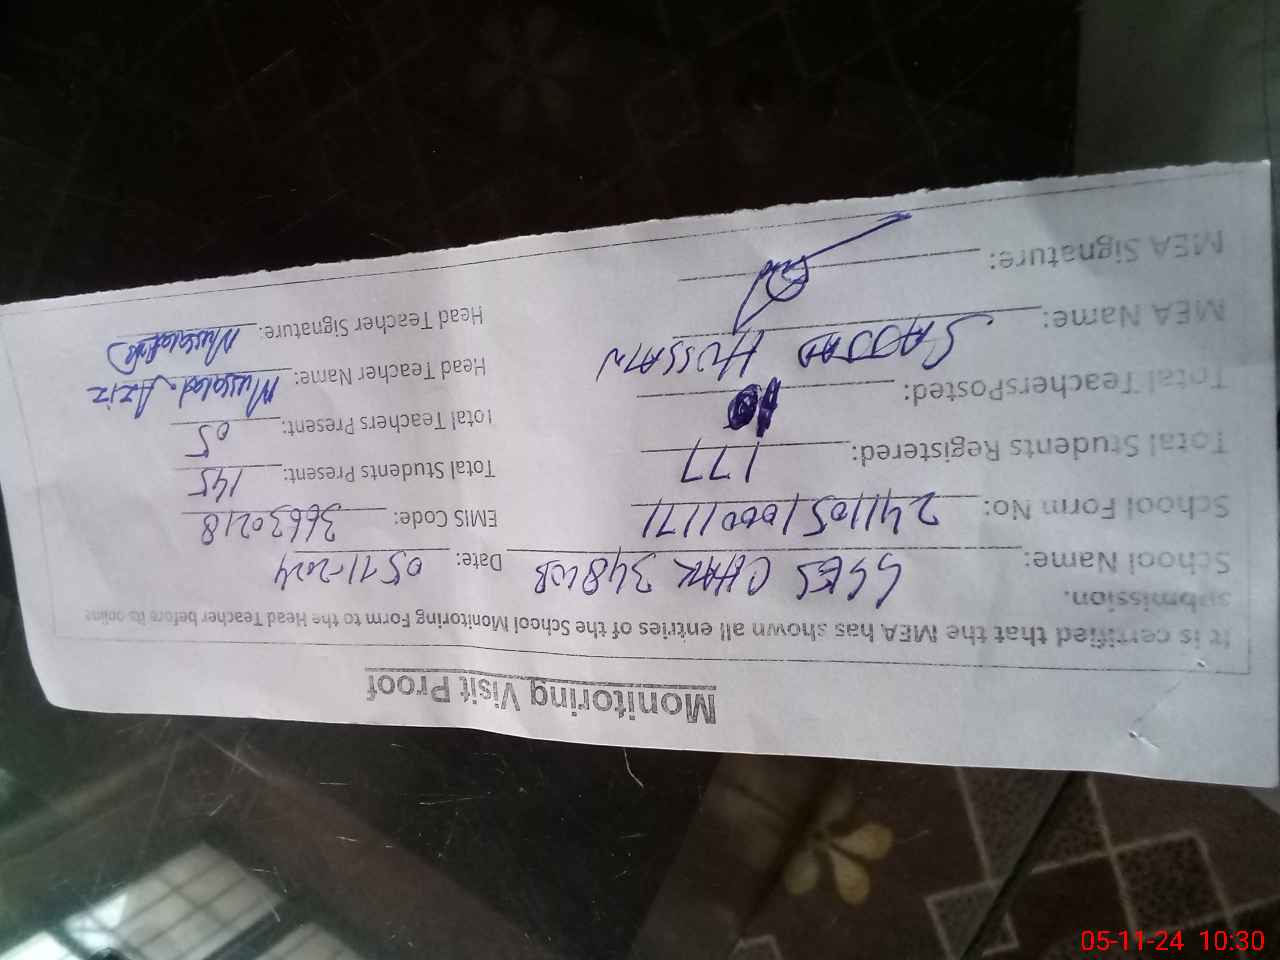 Monitoring Visit Proof
It is certified that the MEA has shown all entries of the School Monitoring Form to the Head Teacher before its online
submission.
School Name: GGES CHAK 348 WB Date: 05-11-2024
School Form No: 24110510001171 EMIS Code: 36630218
Total Students Registered: 177 Total Students Present: 145
Total TeachersPosted: Total Teachers Present: 05
MEA Name: SAJJAD HUSSAIN Head Teacher Name: Mussalat Aziz
MEA Signature: Head Teacher Signature:
05-11-24 10:30